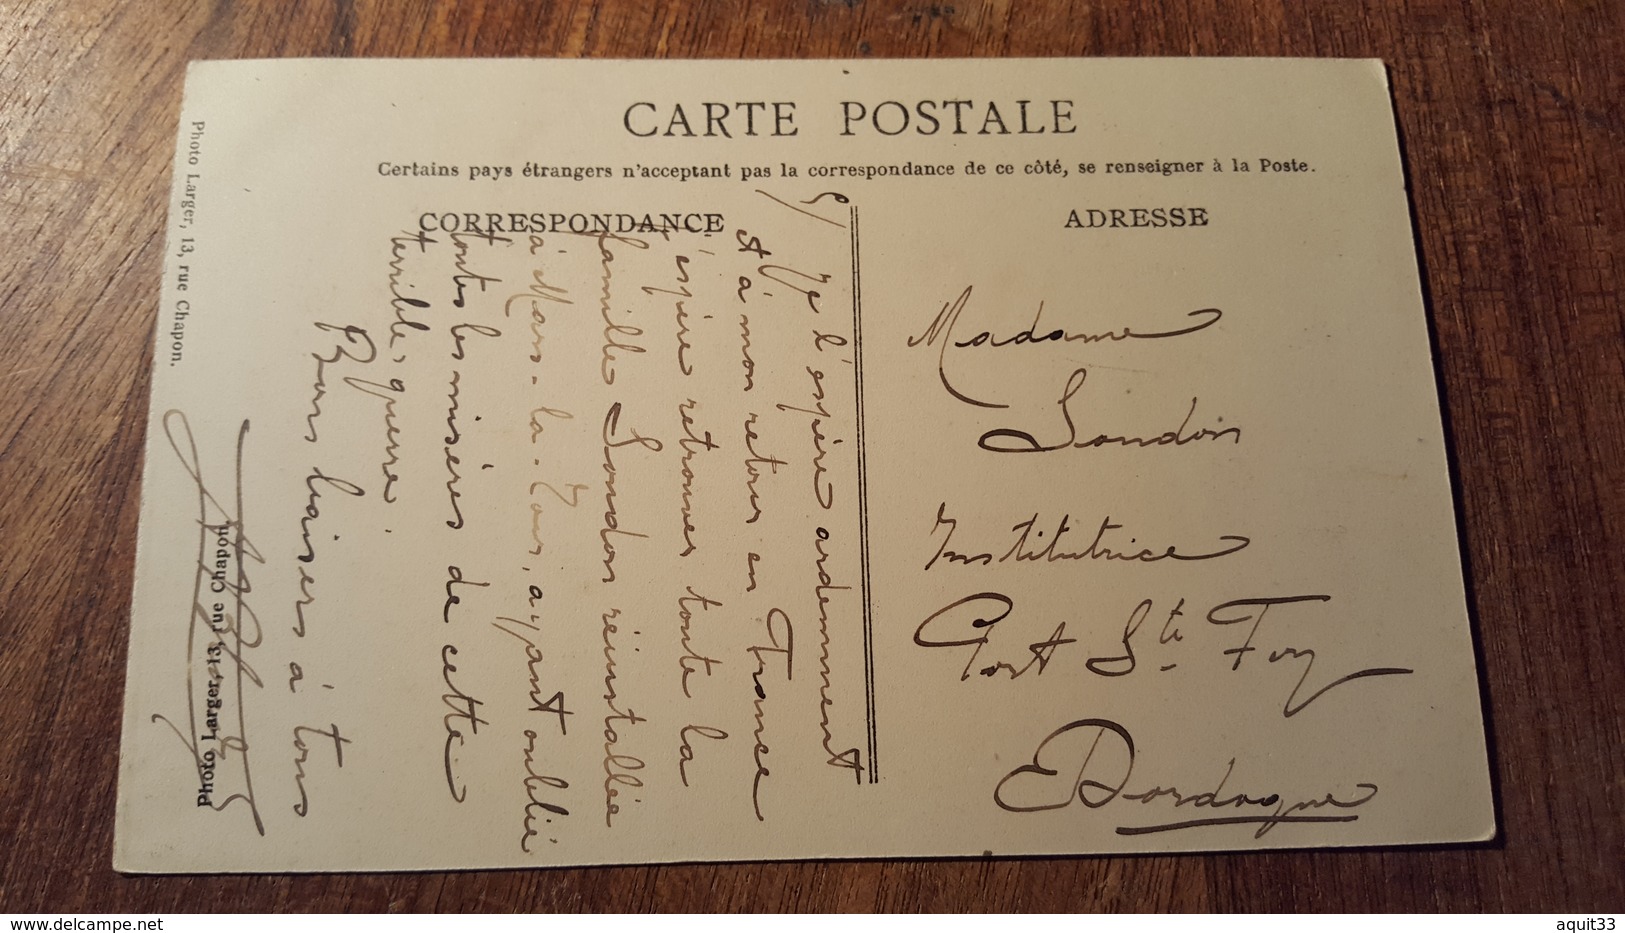 CARTE POSTALE
Certains pays étrangers n'acceptant pas la correspondance de ce côté, se renseigner à la Poste.
CORRESPONDANCE
5/ Je l'espère ardemment
et à mon retour en France
j'espère retrouver toute la
famille Londón réinstallée
à Mars-la-Tour, ayant oublié
toutes les misères de cette
terrible guerre.
Bons baisers à tous
ADRESSE
Madame
Londón
Institutrice
Port Ste Foy
Dordogne
Photo Larger, 13, rue Chapon.
Photo Larger, 13, rue Chapon.
delcampe.net
aquit33